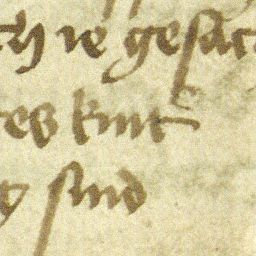 ch ie gesac
tes kint
g sind